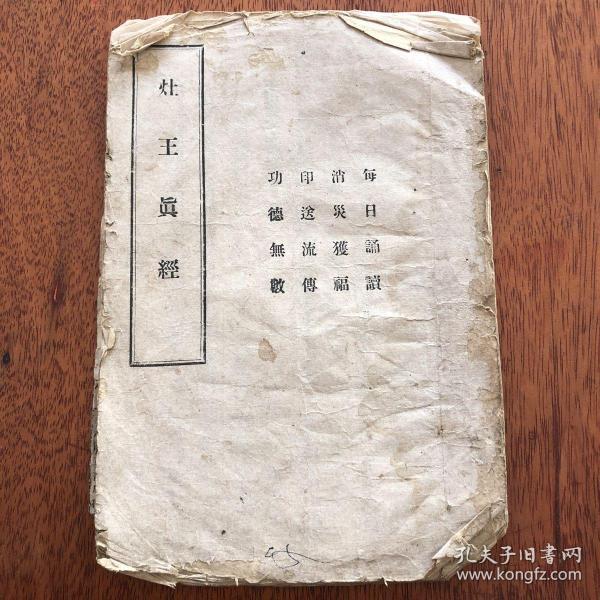 灶王眞經
每日誦讀
消災獲福
印送流傳
功德無數
45
孔夫子旧書网
www.kongfz.com